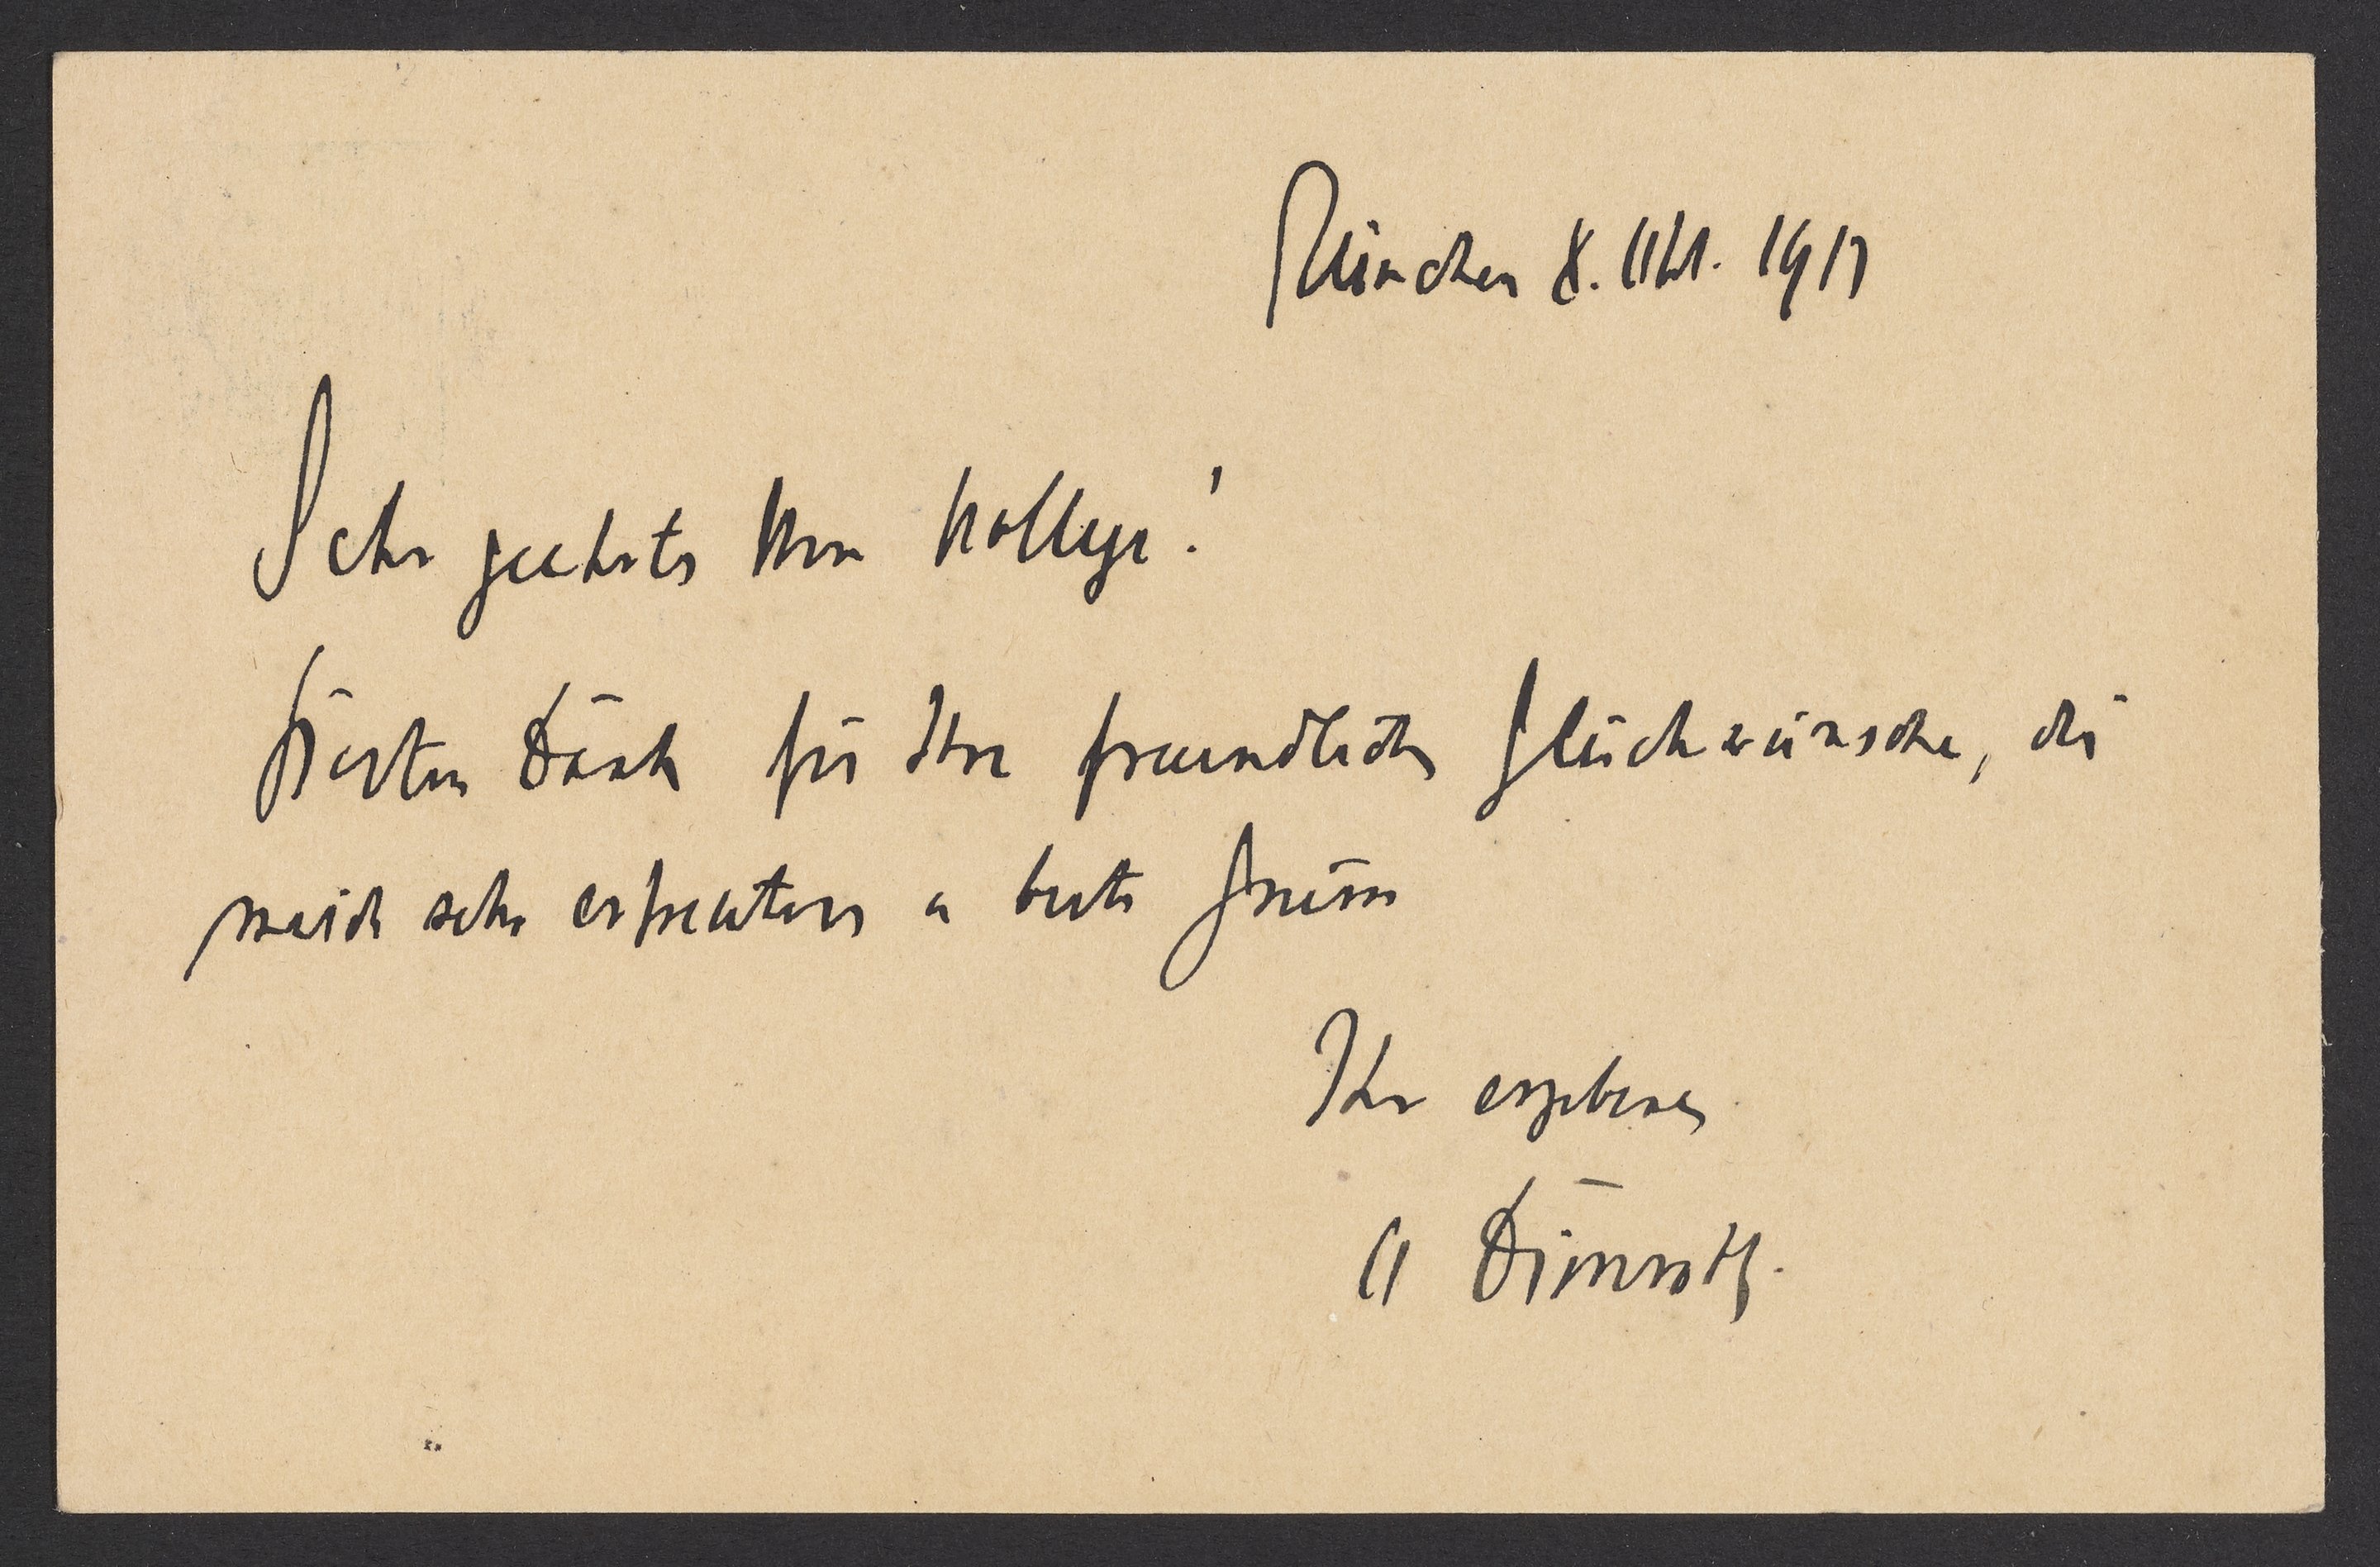 München 8. Okt. 1917
Sehr geehrter Herr Kollege!
Besten Dank für Ihre freundlichen Glückwünsche, die
mich sehr erfreuten u beste Grüsse
Ihr ergebener
O Dimroth.